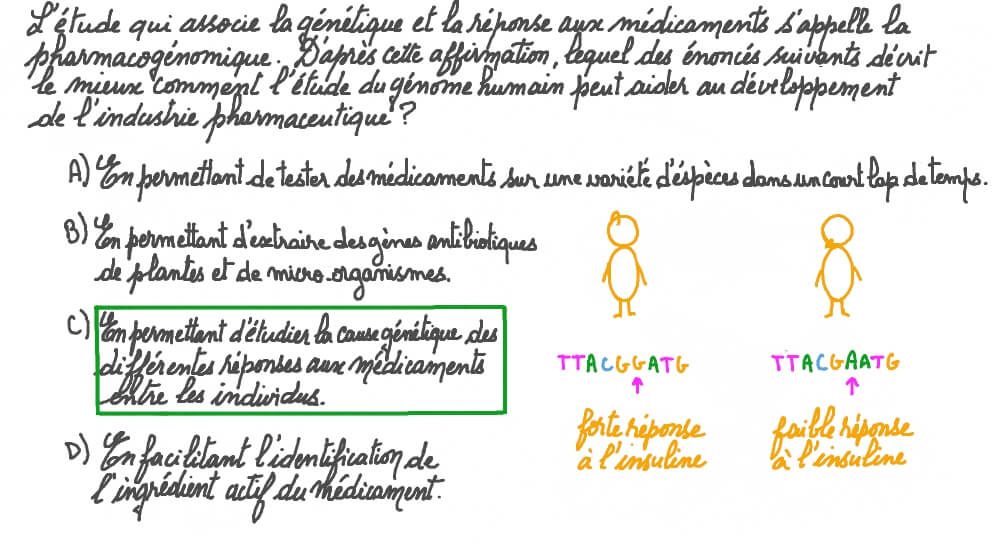 L'étude qui associe la génétique et la réponse aux médicaments s'appelle la
pharmacogénomique. D'après cette affirmation, lequel des énoncés suivants décrit
le mieux comment l'étude du génome humain peut aider au développement
de l'industrie pharmaceutique ?
A) En permettant de tester des médicaments sur une variété d'éspèces dans un court lap de temps.
B) En permettant d'extraire des gènes antibiotiques
de plantes et de micro-organismes.
C) En permettant d'étudier la cause génétique des
différentes réponses aux médicaments
entre les individus.
D) En facilitant l'identification de
l'ingrédient actif du médicament.
TTACGGATG
forte réponse
à l'insuline
TTACGAATG
faible réponse
à l'insuline